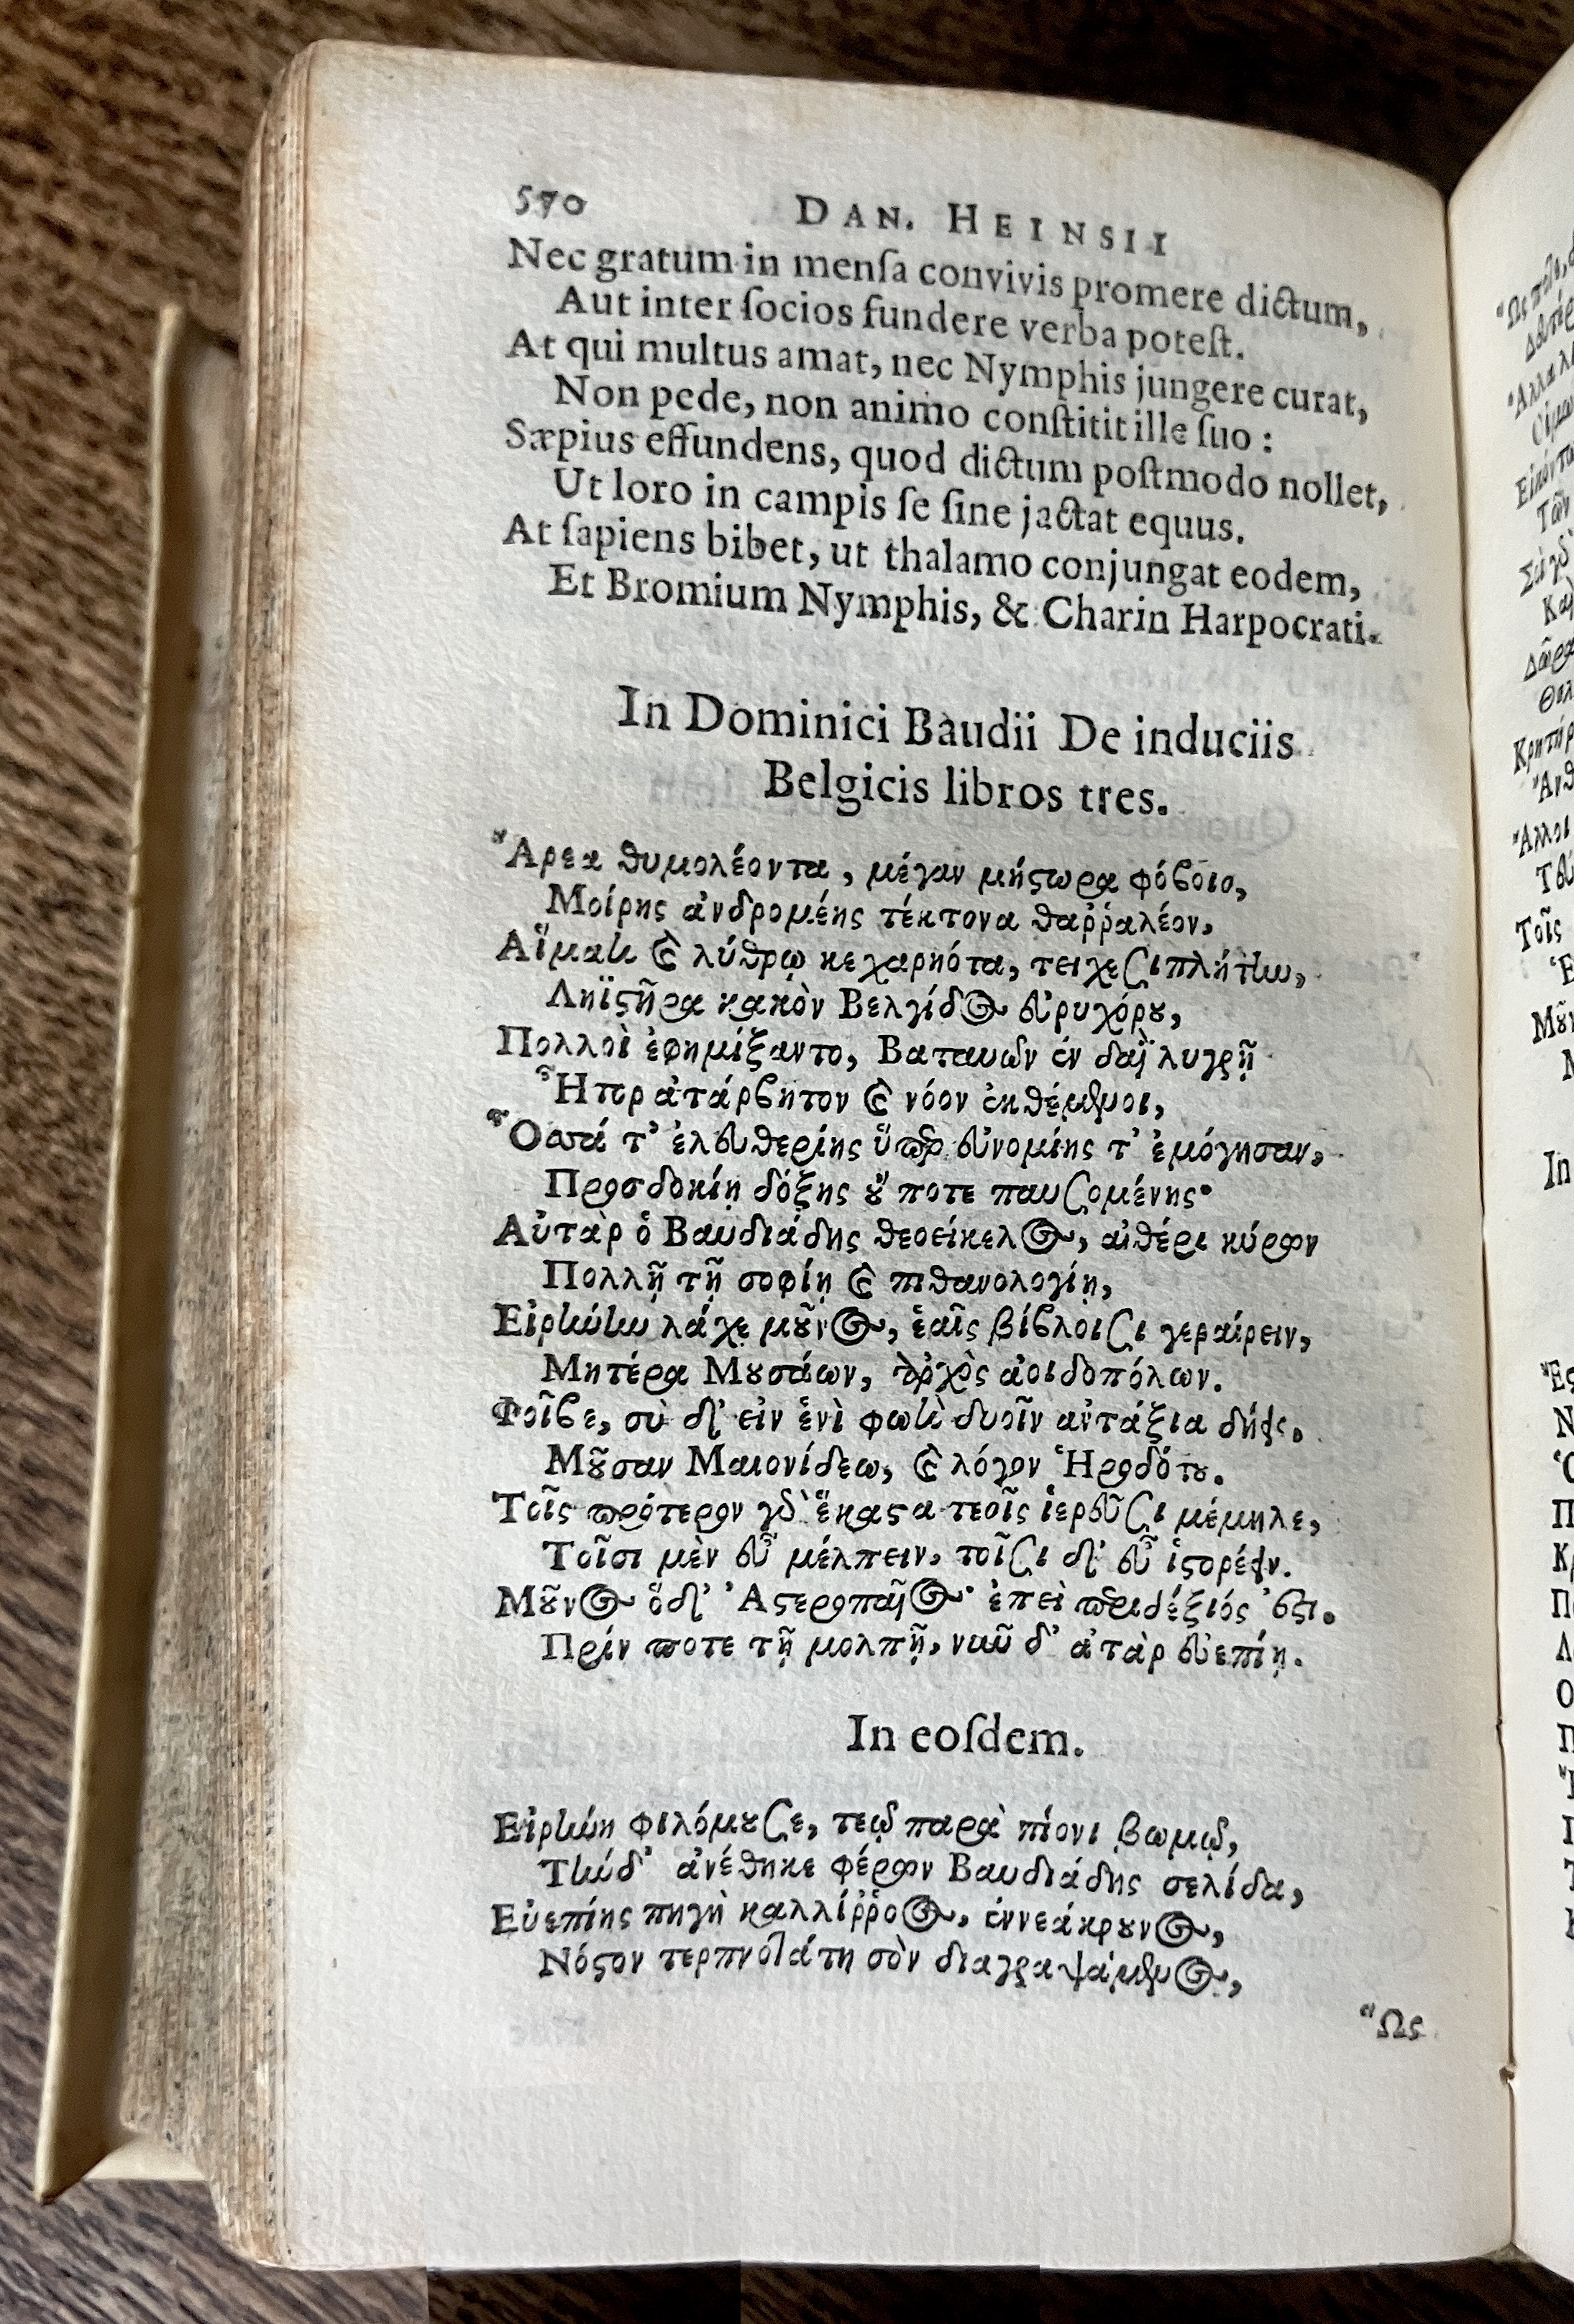 570 DAN. HEINSII
Nec gratum in menſa convivis promere dictum,
Aut inter ſocios fundere verba poteſt.
At qui multus amat, nec Nymphis jungere curat,
Non pede, non animo conſtitit ille ſuo:
Sæpius effundens, quod dictum poſtmodo nollet,
Ut loro in campis ſe ſine jactat equus.
At ſapiens bibet, ut thalamo conjungat eodem,
Et Bromium Nymphis, & Charin Harpocrati.
In Dominici Baudii De induciis
Belgicis libros tres.
Ἄρεα θυμολέοντα, μέγαν μήϛωρα φόβοιο,
Μοίρης ἀνδρομέης τέκτονα θαῤῥαλέον,
Αἵματι ϗ λύθρῳ κεχαρηότα, τειχεσιπλήτην,
Ληϊϛῆρα κακὸν Βελγίδος εὐρυχόρȣ,
Πολλοὶ ἐφημίξαντο, Βαταυῶν ἐν δαῒ λυγρῇ
Ἦτορ ἀτάρβητον ϗ νόον ἐκθέμενοι,
Ὅσσά τ' ἐλευθερίης ὕπερ εὐνομίης τ' ἐμόγησαν,
Προσδοκίῃ δόξης ȣ̓́ ποτε παυσομένης·
Αὐτὰρ ὁ Βαυδιάδης θεοείκελος, αἰθέρι κύρων
Πολλῇ τῇ σοφίῃ ϗ πιθανολογίῃ,
Εἰρήνην λάχε μȣ͂νος, ἑαῖς βίβλοισι γεραίρειν,
Μητέρα Μȣσάων, ὄρχος ἀοιδοπόλων.
Φοῖβε, σὺ δ' εἰν ἑνὶ φωτὶ δυοῖν ἀντάξια δήεις,
Μȣ͂σαν Μαιονίδεω, ϗ λόγον Ἡροδότȣ.
Τοῖς πρότερον γὸ ἕκαϛα τεοῖς ἱερεῦσι μέμηλε,
Τοῖσι μὲν εὖ μέλπειν, τοῖσι δ' εὖ ἱϛορέειν.
Μȣ͂νος ὅδ' Ἀϛεροπαῖος ἐπεὶ περιδέξιός ἐϛι.
Πρίν ποτε τῇ μολπῇ, νῦν δ' ἀτὰρ εὐεπίῃ.
In eoſdem.
Εἰρήνη φιλόμȣσε, τεῷ παρὰ πίονι βωμῷ,
Τήνδ' ἀνέθηκε φέρων Βαυδιάδης σελίδα,
Εὐεπίης πηγὴ καλλίῤῥοος, ἐννεάκρȣνος,
Νόϛον τερπνοτάτη σὸν διαγραψάμενος,
Ὣς